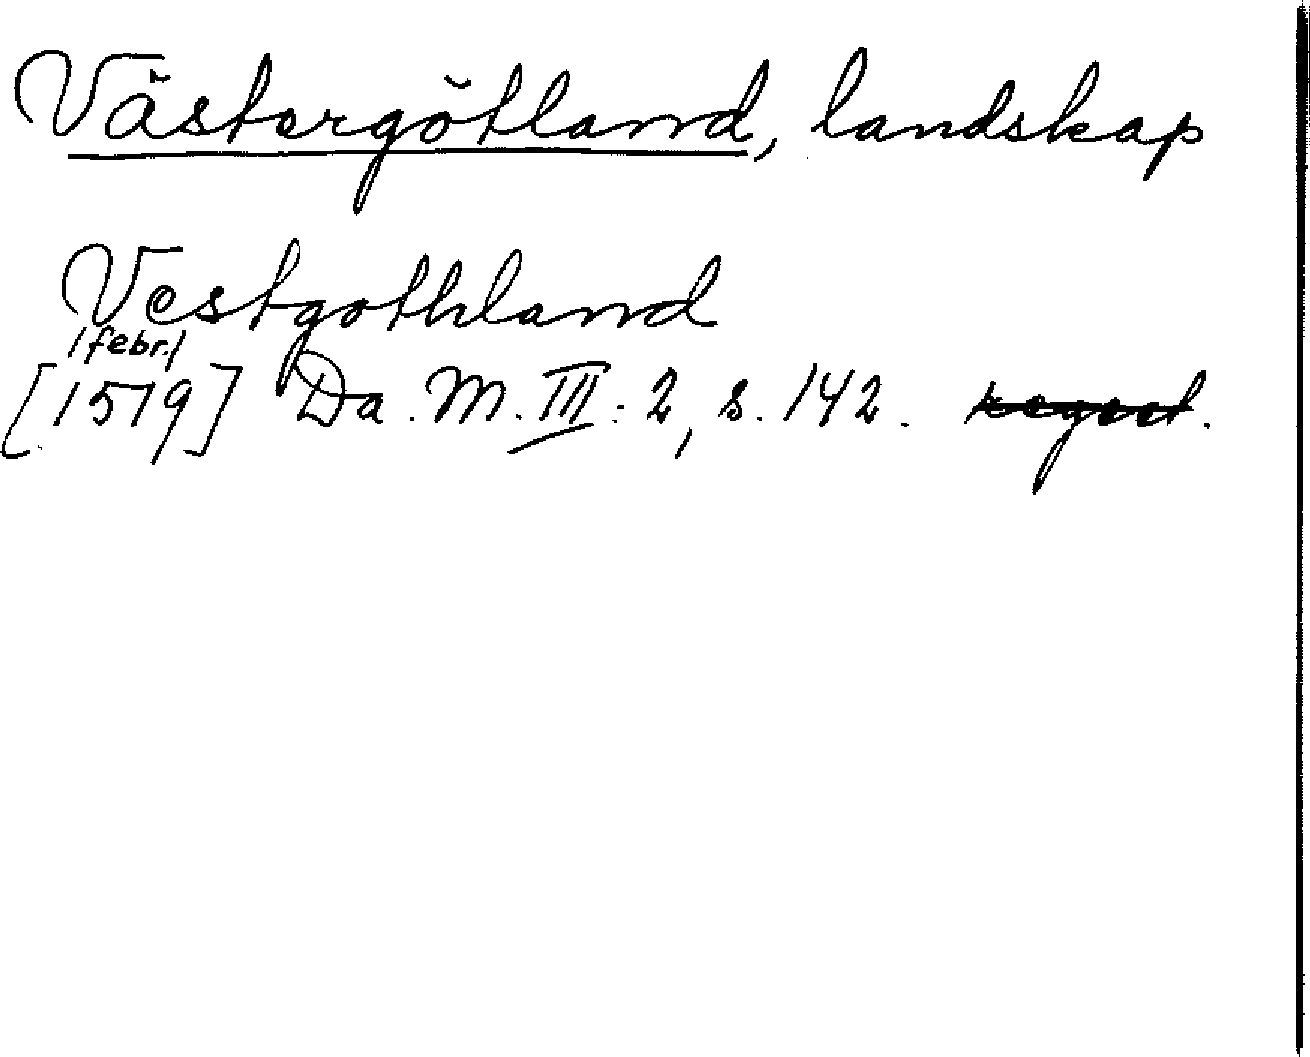 Västergötland, landskap
Vestgothland
/febr./
[1579] Da. M. III: 2, s. 142.